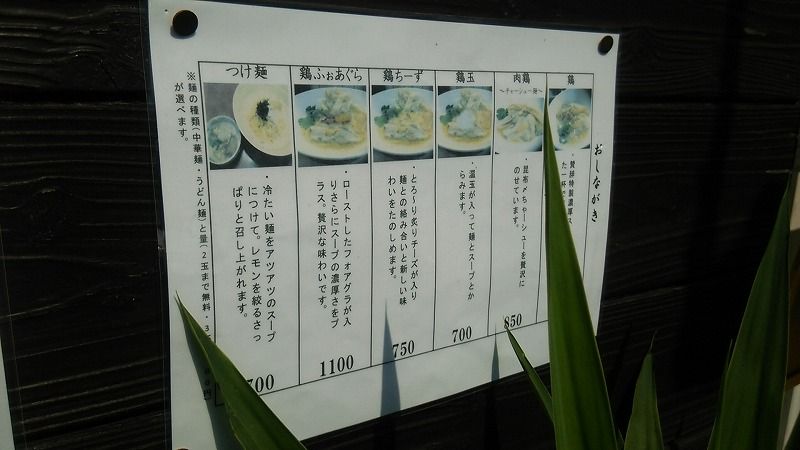 おしながき
鶏
・鶏豚特製濃厚ス
た一杯で
肉鶏
～チャーシュー麺～
・昆布〆ちゃーシューを贅沢に
のせています。
850
鶏玉
・温玉が入って麺とスープとか
らみます。
700
鶏ちーず
・とろ～り炙りチーズが入り
麺との絡み合いと新しい味
わいをたのしめます。
750
鶏ふぉあぐら
・ローストしたフォアグラが入
りさらにスープの濃厚さをプ
ラス。贅沢な味わいです。
1100
つけ麺
・冷たい麺をアツアツのスープ
につけて。レモンを絞るさっ
ぱりと召し上がれます。
700
※麺の種類(中華麺・うどん麺)と量(2玉まで無料・3
が選べます。